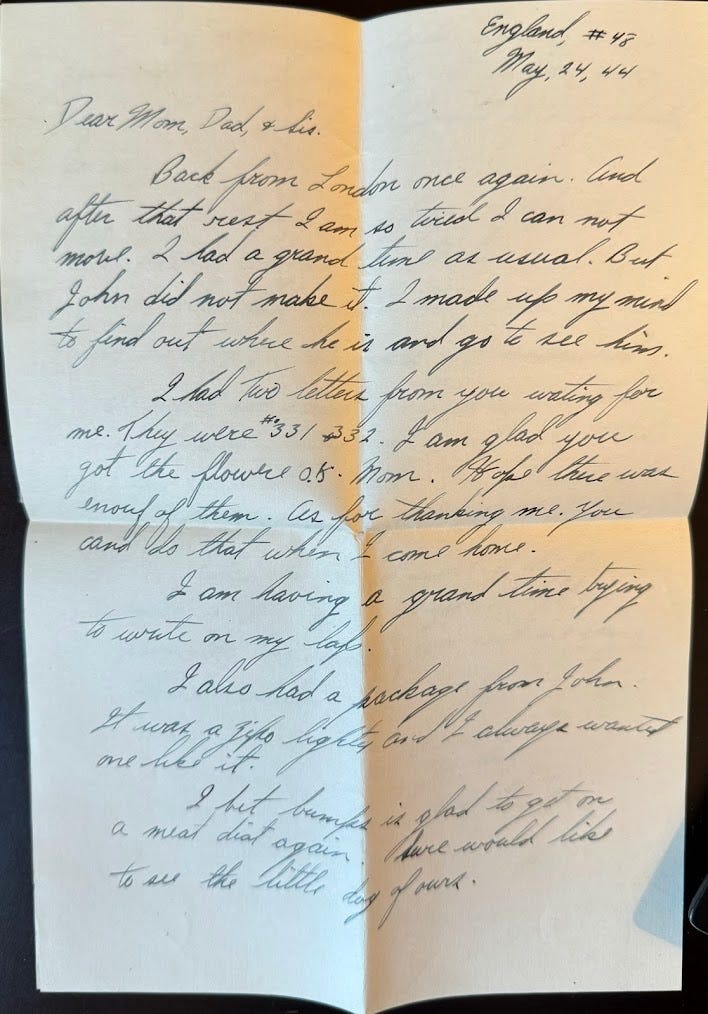 England, #48
May, 24, 44
Dear Mom, Dad, & Sis.
Back from London once again. And
after that rest I am so tired I can not
move. I had a grand time as usual. But
John did not make it. I made up my mind
to find out where he is and go to see him.
I had two letters from you wating for
me. They were #331 & 332. I am glad you
got the flowere O.K. Mom. Hope there was
enouf of them. As for thanking me. You
cand do that when I come home.
I am having a grand time trying
to write on my lap.
I also had a package from John.
It was a zipo lighty and I always wanted
one like it.
I bet bumps is glad to get on
a meat diat again. Sure would like
to see the little dog of ours.